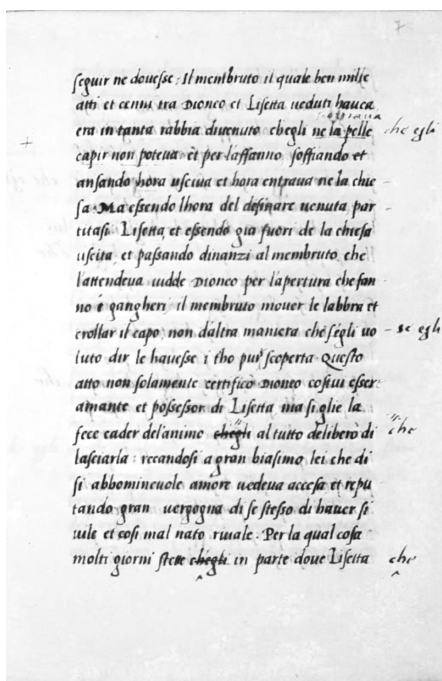 7
seguir ne douesse: Il membruto il quale ben mille
atti et cenni tra Dioneo et Lisetta ueduti hauea
era in tanta rabbia diuenuto chegli ne la pelle
che egli
capir non poteua et per laffanno soffiando et
ansando hora usciua et hora entraua ne la chie
sa. Ma essendo lhora del desinare uenuta par
titasi Lisetta, et essendo gia fuori de la chiesa
uscita et passando dinanzi al membruto, che
l'attendeua uidde Dioneo per l'apertura che fan
no i gangheri il membruto mouer le labbra et
crollar il capo, non daltra maniera che segli uo
se egli
luto dir le hauesse i tho pur scoperta. Questo
atto non solamente certificò Dioneo costui esser
amante et possessor di Lisetta ma si glie la
fece cader del'animo chegli al tutto deliberò di
che
lasciarla: recandosi a gran biasimo lei che di
si abbomineuole amore uedeua accesa et repu
tando gran uergogna di se stesso di hauer si
uile et cosi mal nato riuale. Per la qual cosa
molti giorni stette chegli in parte doue Lisetta
che